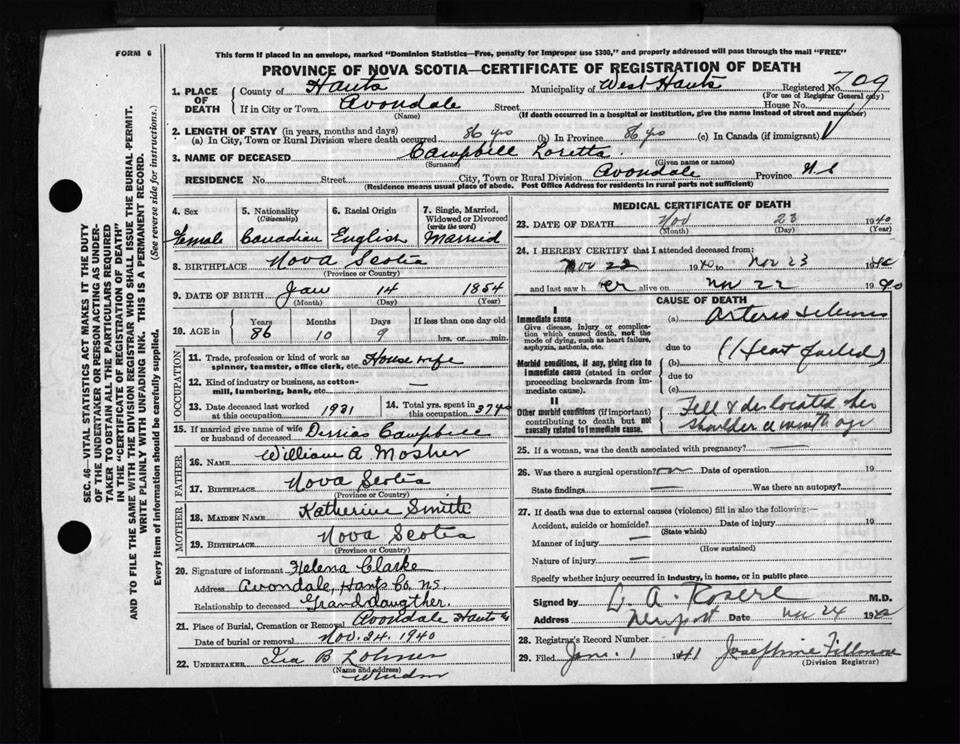 FORM 6
This form if placed in an envelope, marked "Dominion Statistics—Free, penalty for improper use $300," and properly addressed will pass through the mail "FREE"
PROVINCE OF NOVA SCOTIA—CERTIFICATE OF REGISTRATION OF DEATH
709
1. PLACE OF DEATH
County of Hants Municipality of West Hants Registered No.
(For use of Registrar General only)
If in City or Town Avondale Street House No.
(Name) (If death occurred in a hospital or institution, give the name instead of street and number)
2. LENGTH OF STAY (in years, months and days)
(a) In City, Town or Rural Division where death occurred 86 yo (b) In Province 86 yo (c) In Canada (if immigrant)
3. NAME OF DECEASED Campbell Loretta.
(Surname) (Given name or names)
RESIDENCE No. Street City, Town or Rural Division Avondale Province N.S
(Residence means usual place of abode. Post Office Address for residents in rural parts not sufficient)
4. Sex
Female
5. Nationality
(Citizenship)
Canadian
6. Racial Origin
English
7. Single, Married, Widowed or Divorced
(write the word)
Married
8. BIRTHPLACE Nova Scotia
(Province or Country)
9. DATE OF BIRTH Jan 14 1854
(Month) (Day) (Year)
10. AGE in Years Months Days If less than one day old
86 10 9 hrs. or min.
OCCUPATION
11. Trade, profession or kind of work as spinner, teamster, office clerk, etc. House wife
12. Kind of industry or business, as cotton-mill, lumbering, bank, etc. —
13. Date deceased last worked at this occupation 1931
14. Total yrs. spent in this occupation
15. If married give name of wife or husband of deceased Campbell
FATHER
16. NAME William A Mosher
17. BIRTHPLACE Nova Scotia
(Province or Country)
MOTHER
18. MAIDEN NAME Katherine Smith
19. BIRTHPLACE Nova Scotia
(Province or Country)
20. Signature of informant Helena Clarke
Address Avondale, Hants Co. NS
Relationship to deceased Granddaugther.
21. Place of Burial, Cremation or Removal Avondale Hants Co
Date of burial or removal Nov. 24. 1940
22. UNDERTAKER Ira B
(Name and address)
Windsor
MEDICAL CERTIFICATE OF DEATH
23. DATE OF DEATH Nov 23 1940
(Month) (Day) (Year)
24. I HEREBY CERTIFY that I attended deceased from:
Nov 22 1940 to Nov 23 1940
and last saw h er alive on Nov 22 1940
CAUSE OF DEATH
I
Immediate cause
Give disease, injury or complication which caused death, not the mode of dying, such as heart failure, asphyxia, asthenia, etc.
(a)
due to (Heart failed)
Morbid conditions, if any, giving rise to immediate cause (stated in order proceeding backwards from immediate cause).
(b)
due to
(c)
II
Other morbid conditions (if important) contributing to death but not causally related to immediate cause.
Fell & dislocated her
shoulder a month ago
25. If a woman, was the death associated with pregnancy?
26. Was there a surgical operation? Date of operation 19
State findings Was there an autopsy?
27. If death was due to external causes (violence) fill in also the following:—
Accident, suicide or homicide? Date of injury 19
(State which)
Manner of injury —
(How sustained)
Nature of injury —
Specify whether injury occurred in industry, in home, or in public place
Signed by M.D.
Address Newport Date Nov 24 1940
28. Registrar's Record Number
29. Filed Jan. 1 1941 Josephine
(Division Registrar)
SEC. 46—VITAL STATISTICS ACT MAKES IT THE DUTY
OF THE UNDERTAKER OR PERSON ACTING AS UNDER-
TAKER TO OBTAIN ALL THE PARTICULARS REQUIRED
IN THE "CERTIFICATE OF REGISTRATION OF DEATH"
AND TO FILE THE SAME WITH THE DIVISION REGISTRAR WHO SHALL ISSUE THE BURIAL PERMIT.
WRITE PLAINLY WITH UNFADING INK. THIS IS A PERMANENT RECORD.
Every item of information should be carefully supplied. (See reverse side for instructions.)